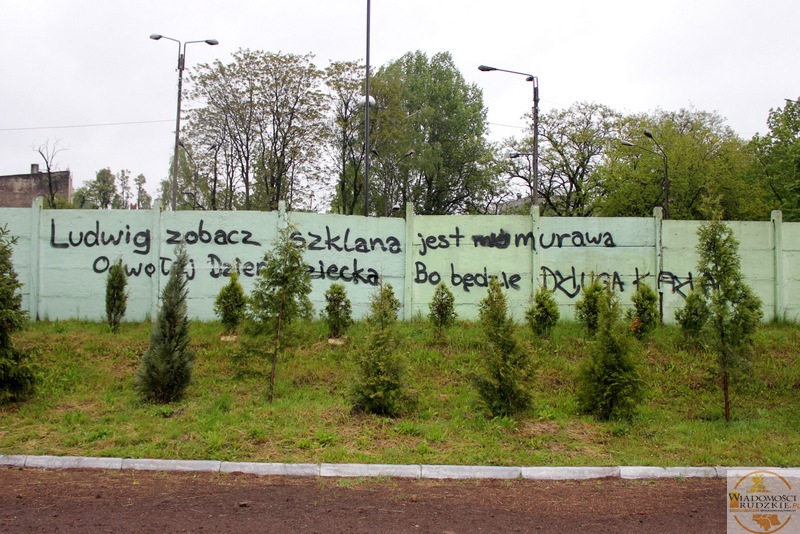 Ludwig zobacz szklana jest murawa
Odwołaj Dzień Dziecka Bo będzie DŁUGA
WIADOMOŚCI
RUDZKIE.PL